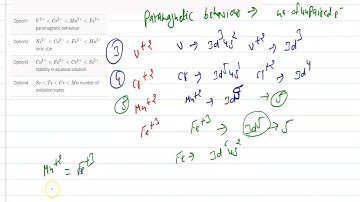 Option1 V²⁺ < Cr²⁺ < Mn²⁺ < Fe²⁺
paramagnetic behaviour
Option2 Ni²⁺ < Co²⁺ < Fe²⁺ < Mn²⁺
ionic size
Option3 Co³⁺ < Fe³⁺ < Cr³⁺ < Sc³⁺
stability in aqueous solution
Option4 Sc < Ti < Cr < Mn number of
oxidation states
Paramagnetic behaviour → no. of unpaired e⁻
③ V⁺² V → 3d³4s² V⁺² → 3d³
④ Cr⁺² Cr → 3d⁵4s¹ Cr⁺² → 3d⁴
⑤ Mn⁺² Mn⁺² → 3d⁵ → ⑤
Fe⁺³ Fe⁺³ → 3d⁵ → 5
Fe → 3d⁶4s²
Mn⁺² = Fe⁺³